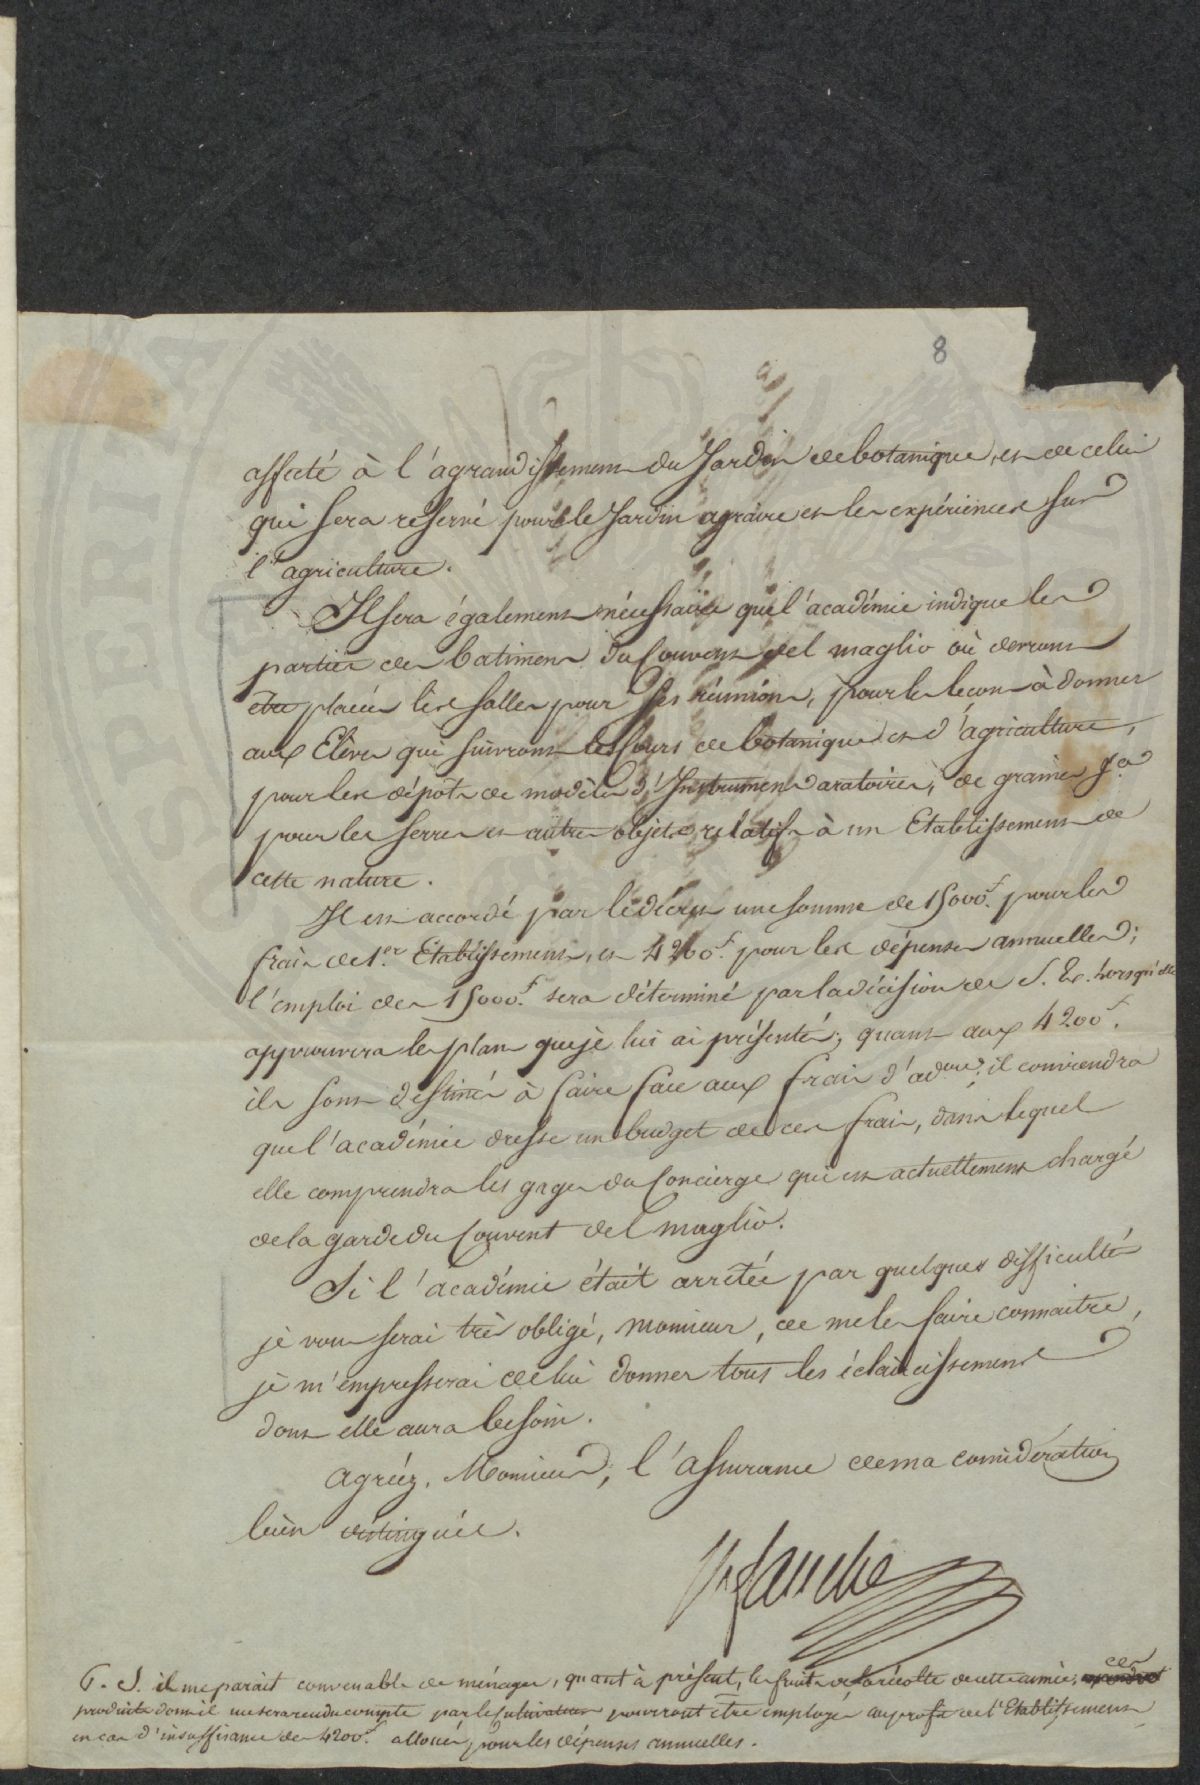 8
affecté à l'agrandissement du Jardin de botanique, et de celui
qui sera reservé pour le Jardin agraire et les expériences sur
l'agriculture.
Il sera également nécessaire que l'académie indique les
parties des batimens du Couvent del maglio où devront
être placées les salles pour ses réunions, pour les leçons à donner
aux Elèves qui suivront les Cours de botanique et d'agriculture,
pour les dépôts de modèles d'Instrumens aratoires, de graines &a
pour les serres et autres objets relatifs à un Etablissement de
cette nature.
Il est accordé par le décret une somme de 15000f. pour les
frais de 1.er Etablissement, et 4200f. pour les dépenses annuelles;
l'emploi des 15000f. sera déterminé par la décision de S. Ex. lorsqu'elle
approuvera les plans que je lui ai présentés; quant aux 4200f.
ils sont destinés à faire face aux frais d'adon; il conviendra
que l'académie dresse un budget de ces frais, dans lequel
elle comprendra les gages du Concierge qui est actuellement chargé
de la garde du Couvent del maglio.
Si l'académie était arrêtée par quelques difficultés
je vous serai très obligé, monsieur, de me les faire connaitre,
je m'empresserai de lui donner tous les éclaircissemens
dont elle aura besoin.
Agréez, Monsieur, l'assurance de ma considération
bien distinguée.
Fauchet
P. S. il me parait convenable de ménager, quant à présent, les fruits de la récolte de cette année; ces
produits dont il me sera rendu compte par le Cultivateur pourront être employés au profit de l'Etablissement
en cas d'insuffisance des 4200f. alloués pour les dépenses annuelles.